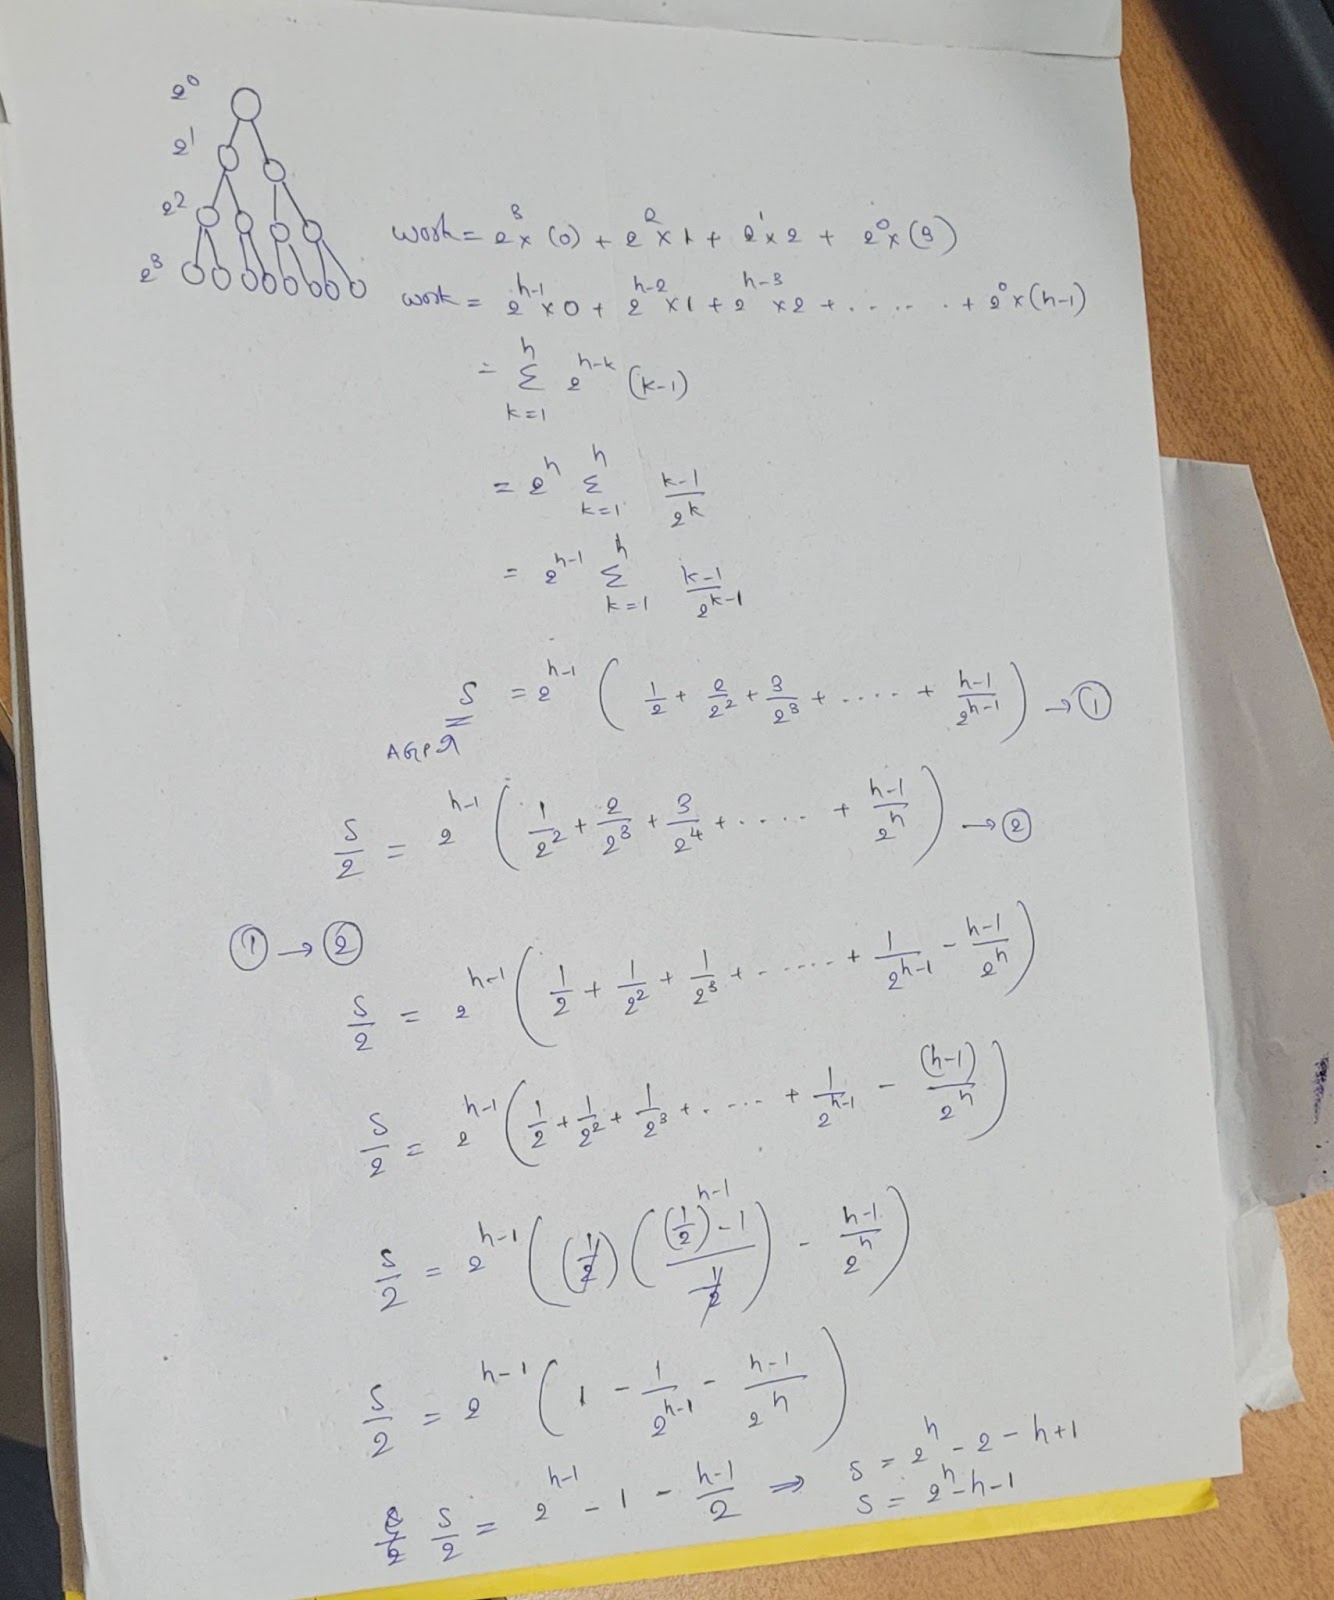 2^0
2^1
2^2
2^3
work = 2^3 × (0) + 2^2 × 1 + 2^1 × 2 + 2^0 × (3)
work = 2^{h-1} × 0 + 2^{h-2} × 1 + 2^{h-3} × 2 + ...... + 2^0 × (h-1)
= Σ_{k=1}^{h} 2^{h-k} (k-1)
= 2^h Σ_{k=1}^{h} (k-1)/2^k
= 2^{h-1} Σ_{k=1}^{h} (k-1)/2^{k-1}
S = 2^{h-1} ( 1/2 + 2/2^2 + 3/2^3 + .... + (h-1)/2^{h-1} ) → ①
AGP
S/2 = 2^{h-1} ( 1/2^2 + 2/2^3 + 3/2^4 + .... + (h-1)/2^h ) → ②
① → ②
S/2 = 2^{h-1} ( 1/2 + 1/2^2 + 1/2^3 + ..... + 1/2^{h-1} - (h-1)/2^h )
S/2 = 2^{h-1} ( 1/2 + 1/2^2 + 1/2^3 + ..... + 1/2^{h-1} - (h-1)/2^h )
S/2 = 2^{h-1} ( (1/2) ( ((1/2)^{h-1} - 1) / (1/2) ) - (h-1)/2^h )
S/2 = 2^{h-1} ( 1 - 1/2^{h-1} - (h-1)/2^h )
S/2 = 2^{h-1} - 1 - (h-1)/2 ⇒ S = 2^h - 2 - h + 1
S = 2^h - h - 1